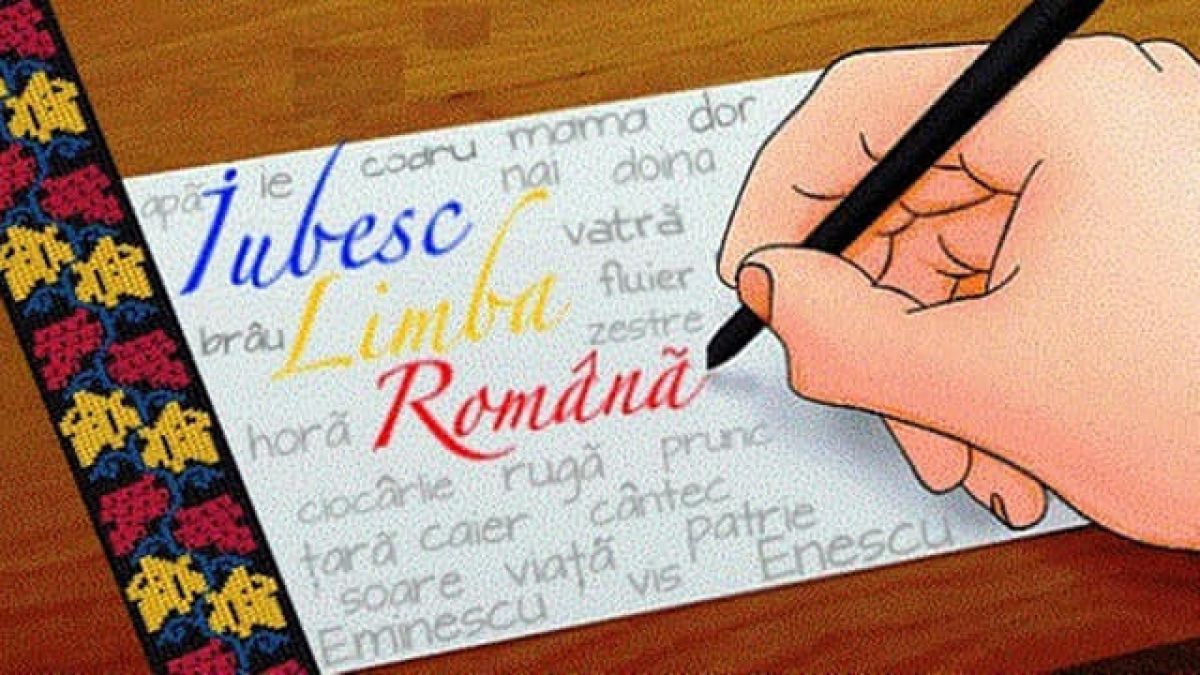 apă ie codru mama dor
nai doina
Iubesc
vatră
Limba
fluier
brâu
zestre
Română
horă
rugă prunc
ciocârlie
cântec
țară caier
patrie
soare viață
vis Enescu
Eminescu